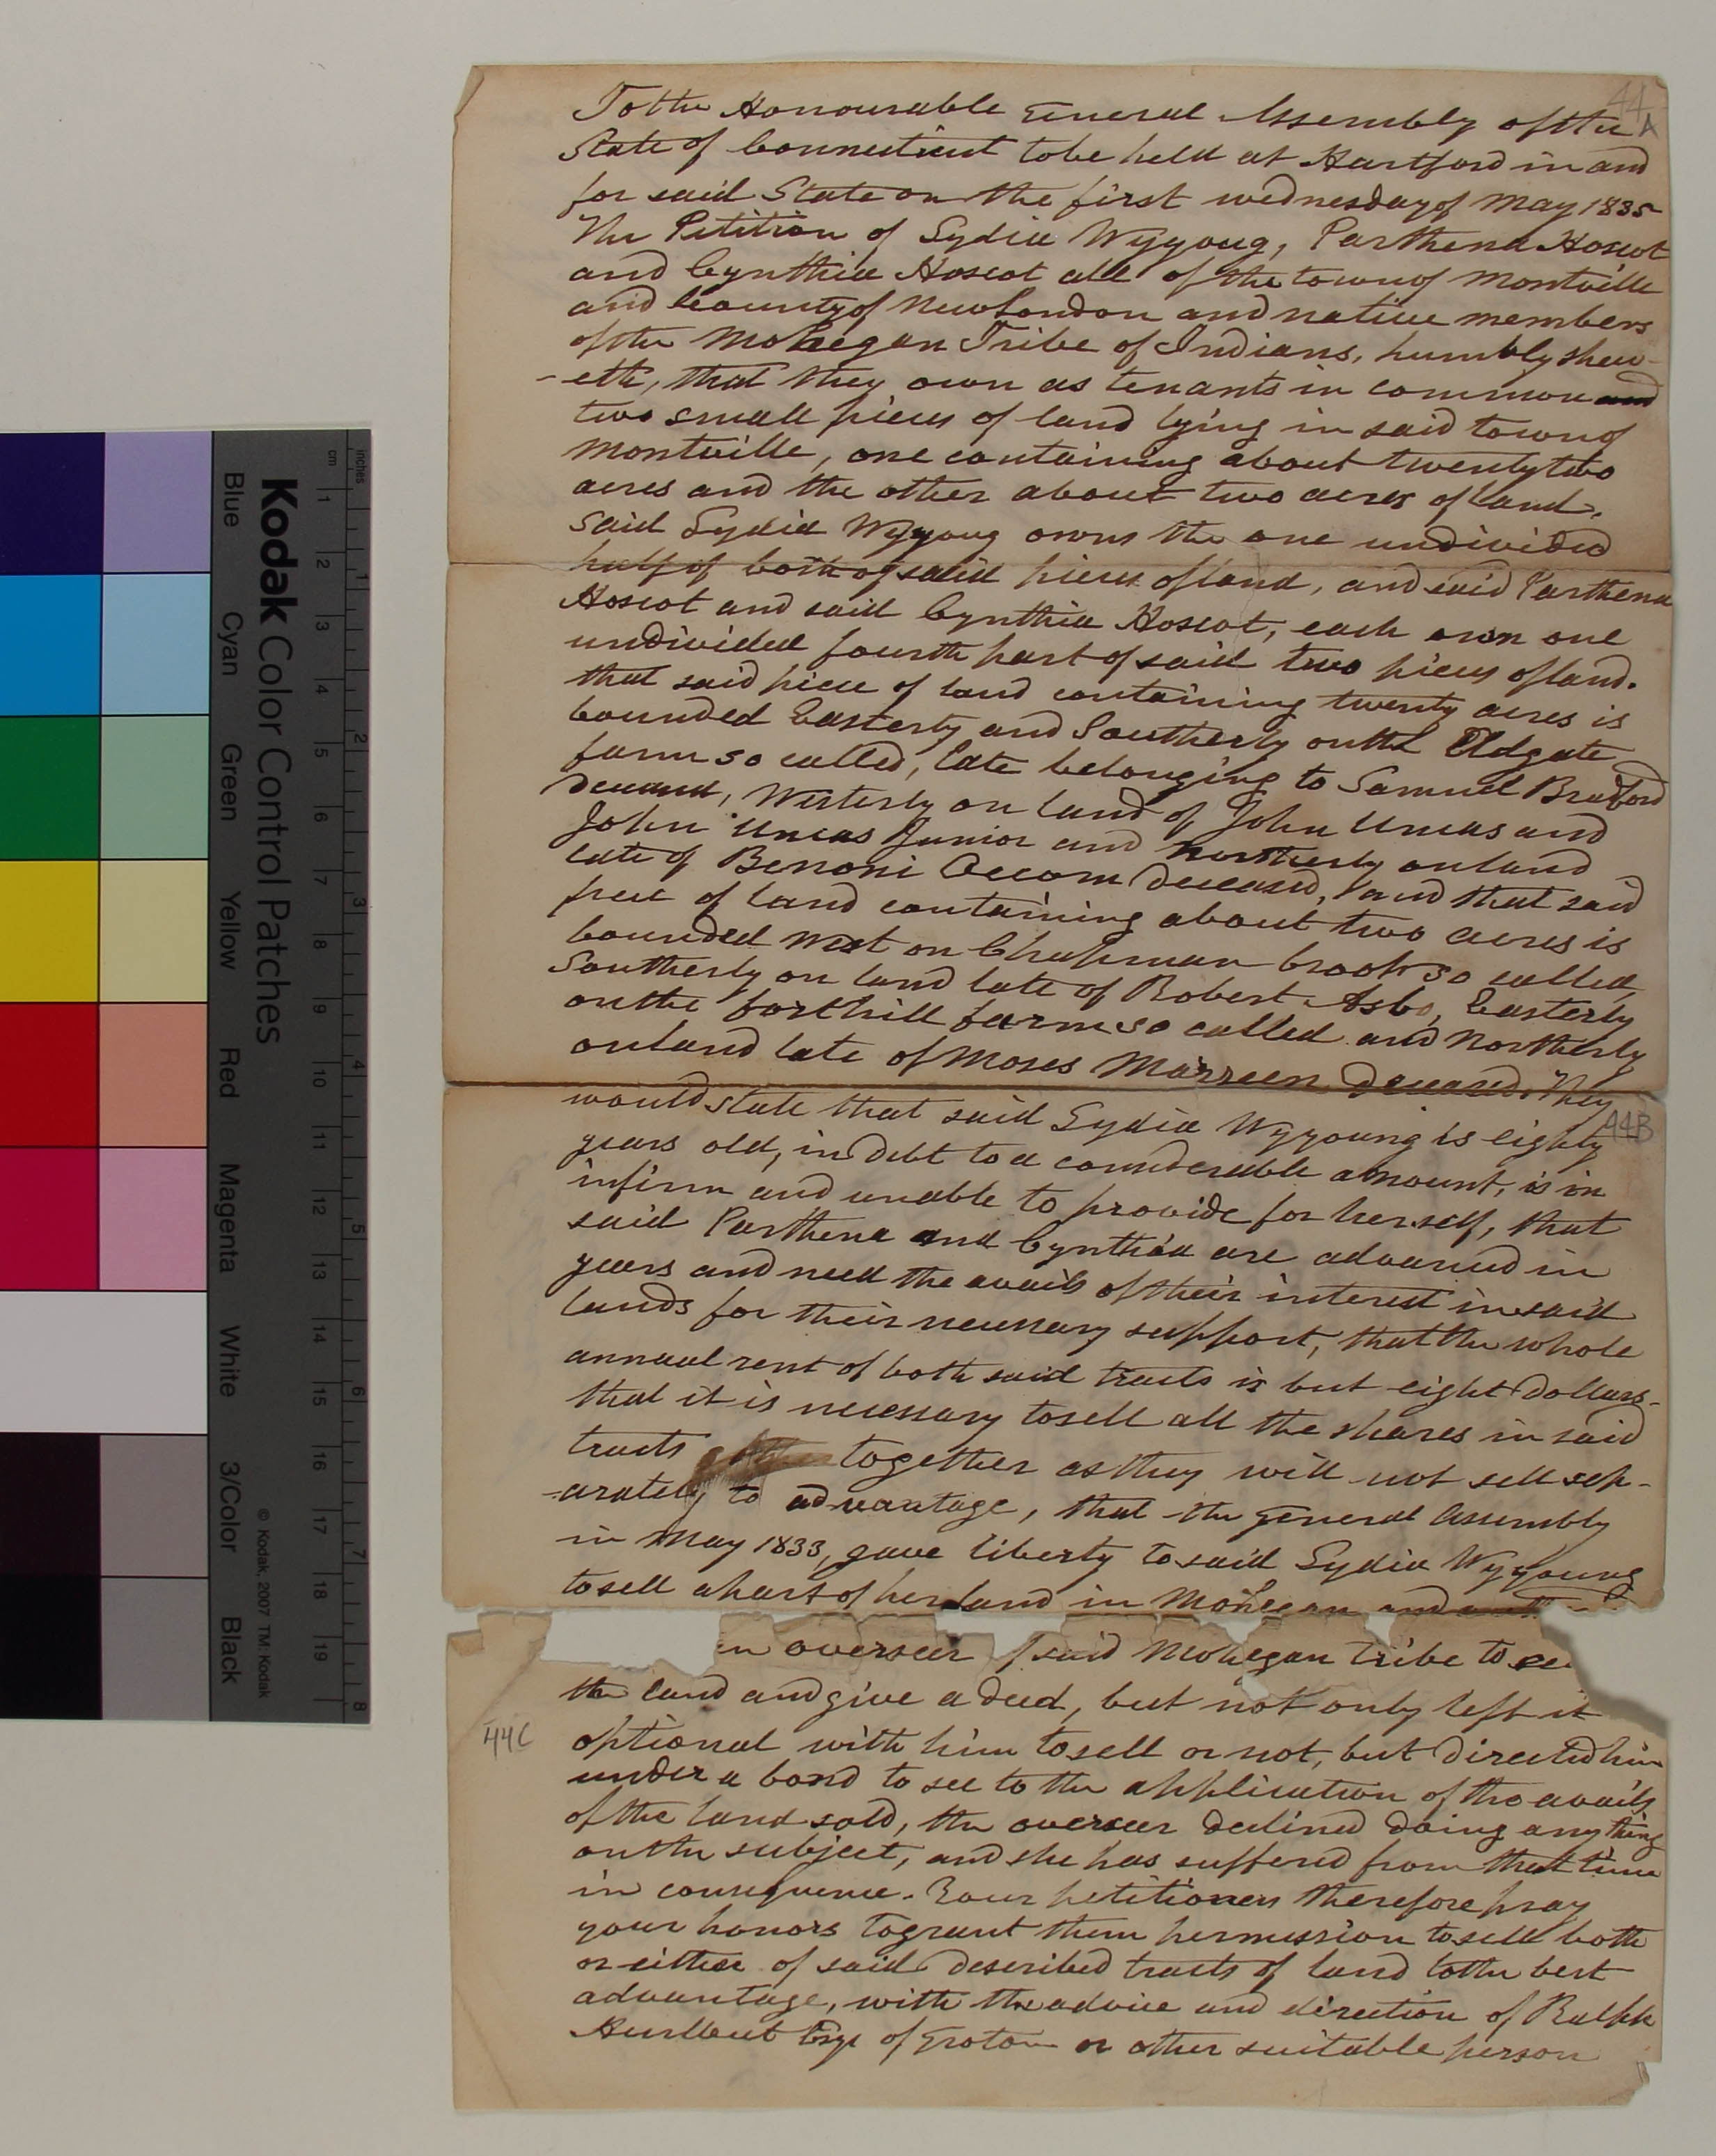 44
A
To the Honourable General Assembly of the
State of Connecticut to be held at Hartford in and
for said State on the first wednesday of May 1835
The Petition of Lydia Wyyoug, Parthena Hoscot
and Cynthia Hoscot all of the town of Montville
and County of New London and native members
of the Mohegan Tribe of Indians, humbly shew-
-eth, that they own as tenants in common and
two small pieces of land lying in said town of
Montville, one containing about twenty two
acres and the other about two acres of land,
said Lydia Wyyoug owns the one undivided
half of both of said pieces of land, and said Parthena
Hoscot and said Cynthia Hoscot, each own one
undivided fourth part of said two pieces of land.
that said piece of land containing twenty acres is
bounded Easterly and Southerly on the Aldgate
farm so called, late belonging to Samuel Bradford
deceased, Westerly on land of John Uncas and
John Uncas Junior and northerly on land
late of Benoni Occom deceased, and that said
piece of land containing about two acres is
bounded West on Chapman brook so called,
Southerly on land late of Robert Asbo, Easterly
on the forthill farm so called and Northerly
on land late of Moses Mazzeen deceased. They
would state that said Lydia Wyyoung is eighty
44B
years old, in debt to a considerable amount, is in
infirm and unable to provide for herself, that
said Parthena and Cynthia are advanced in
years and need the avails of their interest in said
lands for their necessary support, that the whole
annual rent of both said tracts is but eight dollars-
that it is necessary to sell all the shares in said
tracts together as they will not sell sep-
-arately to advantage, that the General Assembly
in May 1833, gave liberty to said Lydia Wyyoung
to sell a part of her land in Mohegan and
an overseer of said Mohegan tribe to
the land and give a deed, but not only left it
44C
optional with him to sell or not, but directed him
under a bond to see to the application of the avails
of the land sold, the overseer declined doing any thing
on the subject, and she has suffered from that time
in consequence. Your petitioners therefore pray
your honors to grant them permission to sell both
or either of said described tracts of land to the best
advantage, with the advice and direction of Ralph
Hurlbut Esqr of Groton or other suitable person
inches
cm
1 2 3 4 5 6 7 8
1 2 3 4 5 6 7 8 9 10 11 12 13 14 15 16 17 18 19
Kodak Color Control Patches
© Kodak, 2007 TM: Kodak
Blue Cyan Green Yellow Red Magenta White 3/Color Black